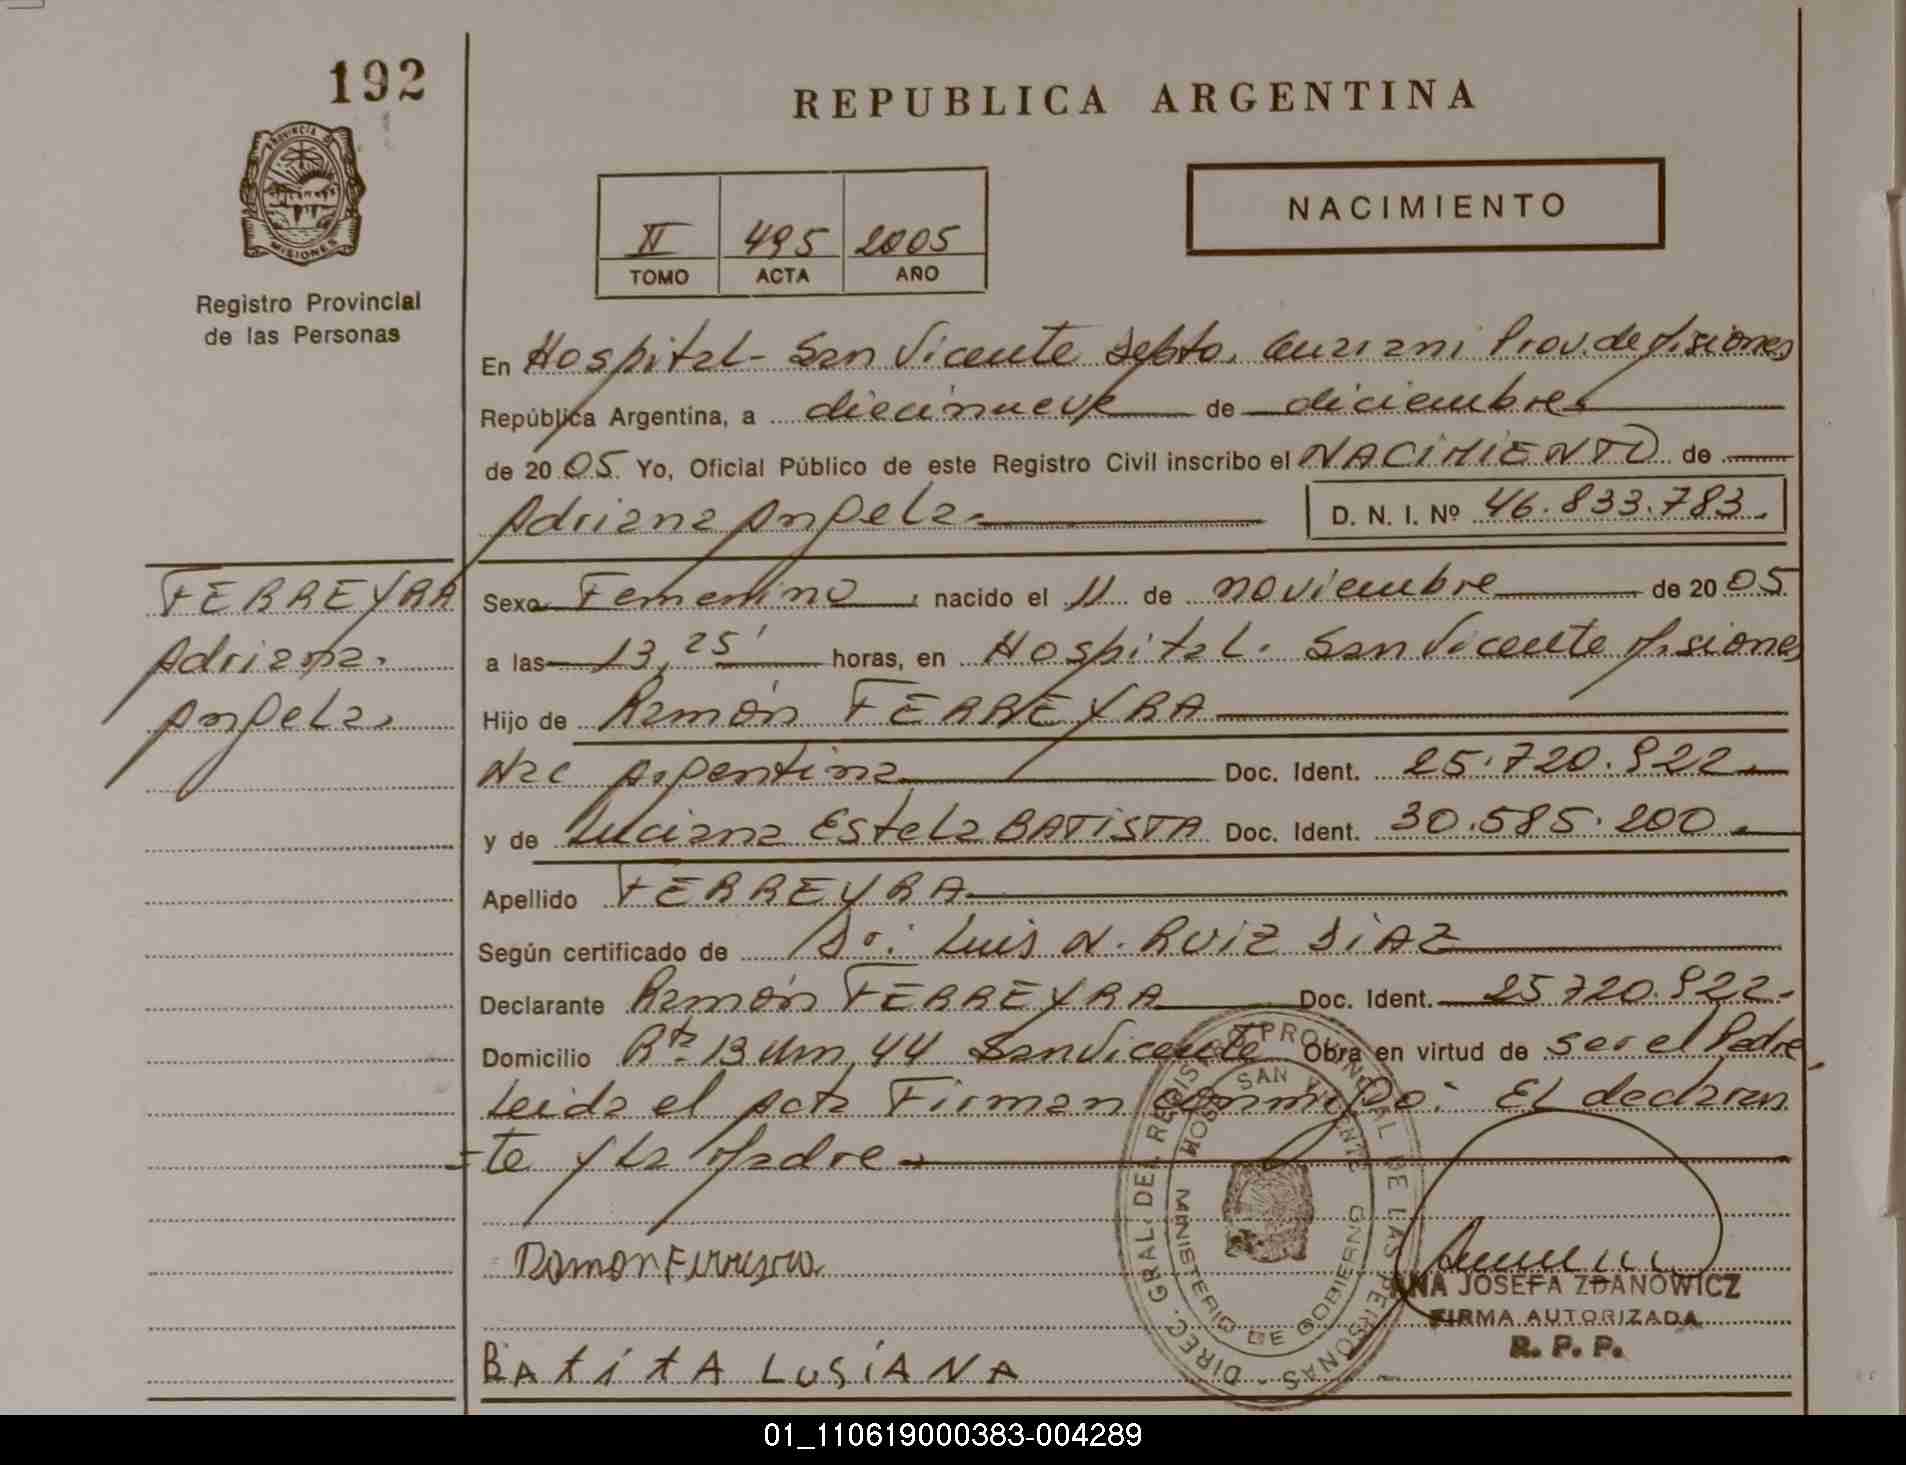 192
REPUBLICA ARGENTINA
PROVINCIA DE
MISIONES
Registro Provincial
de las Personas
II 495 2005
TOMO ACTA AÑO
NACIMIENTO
En Hospital - San Vicente Depto. Guarani Prov. de Misiones
República Argentina, a diecinueve de diciembre
de 2005 Yo, Oficial Público de este Registro Civil inscribo el NACIMIENTO de
Adriana Angela. D. N. I. Nº 46.833.783.
FERREYRA
Adriana.
Angela.
Sexo Femenino, nacido el 11 de noviembre de 2005
a las 13,25' horas, en Hospital. San Vicente Misiones
Hijo de Ramón FERREYRA
Nac Argentina Doc. Ident. 25.720.922.
y de Luciana Estela BATISTA Doc. Ident. 30.585.200.
Apellido FERREYRA
Según certificado de Dr. Luis N. RUIZ DIAZ
Declarante Ramón FERREYRA Doc. Ident. 25720.922.
Domicilio Rta. 13 Km, 44 San Vicente Obra en virtud de ser el Padre,
Leida el Acta Firman conmigo: EL declaran
-te y La Madre
Ramon Ferreyra
BAtitA LUSiANA
DIREC. GRAL. DEL REGIST. PROVINCIAL DE LAS PERSONAS -
HOSP. SAN VICENTE
MINISTERIO DE GOBIERNO
ANA JOSEFA ZDANOWICZ
FIRMA AUTORIZADA
R. P. P.
01_110619000383-004289